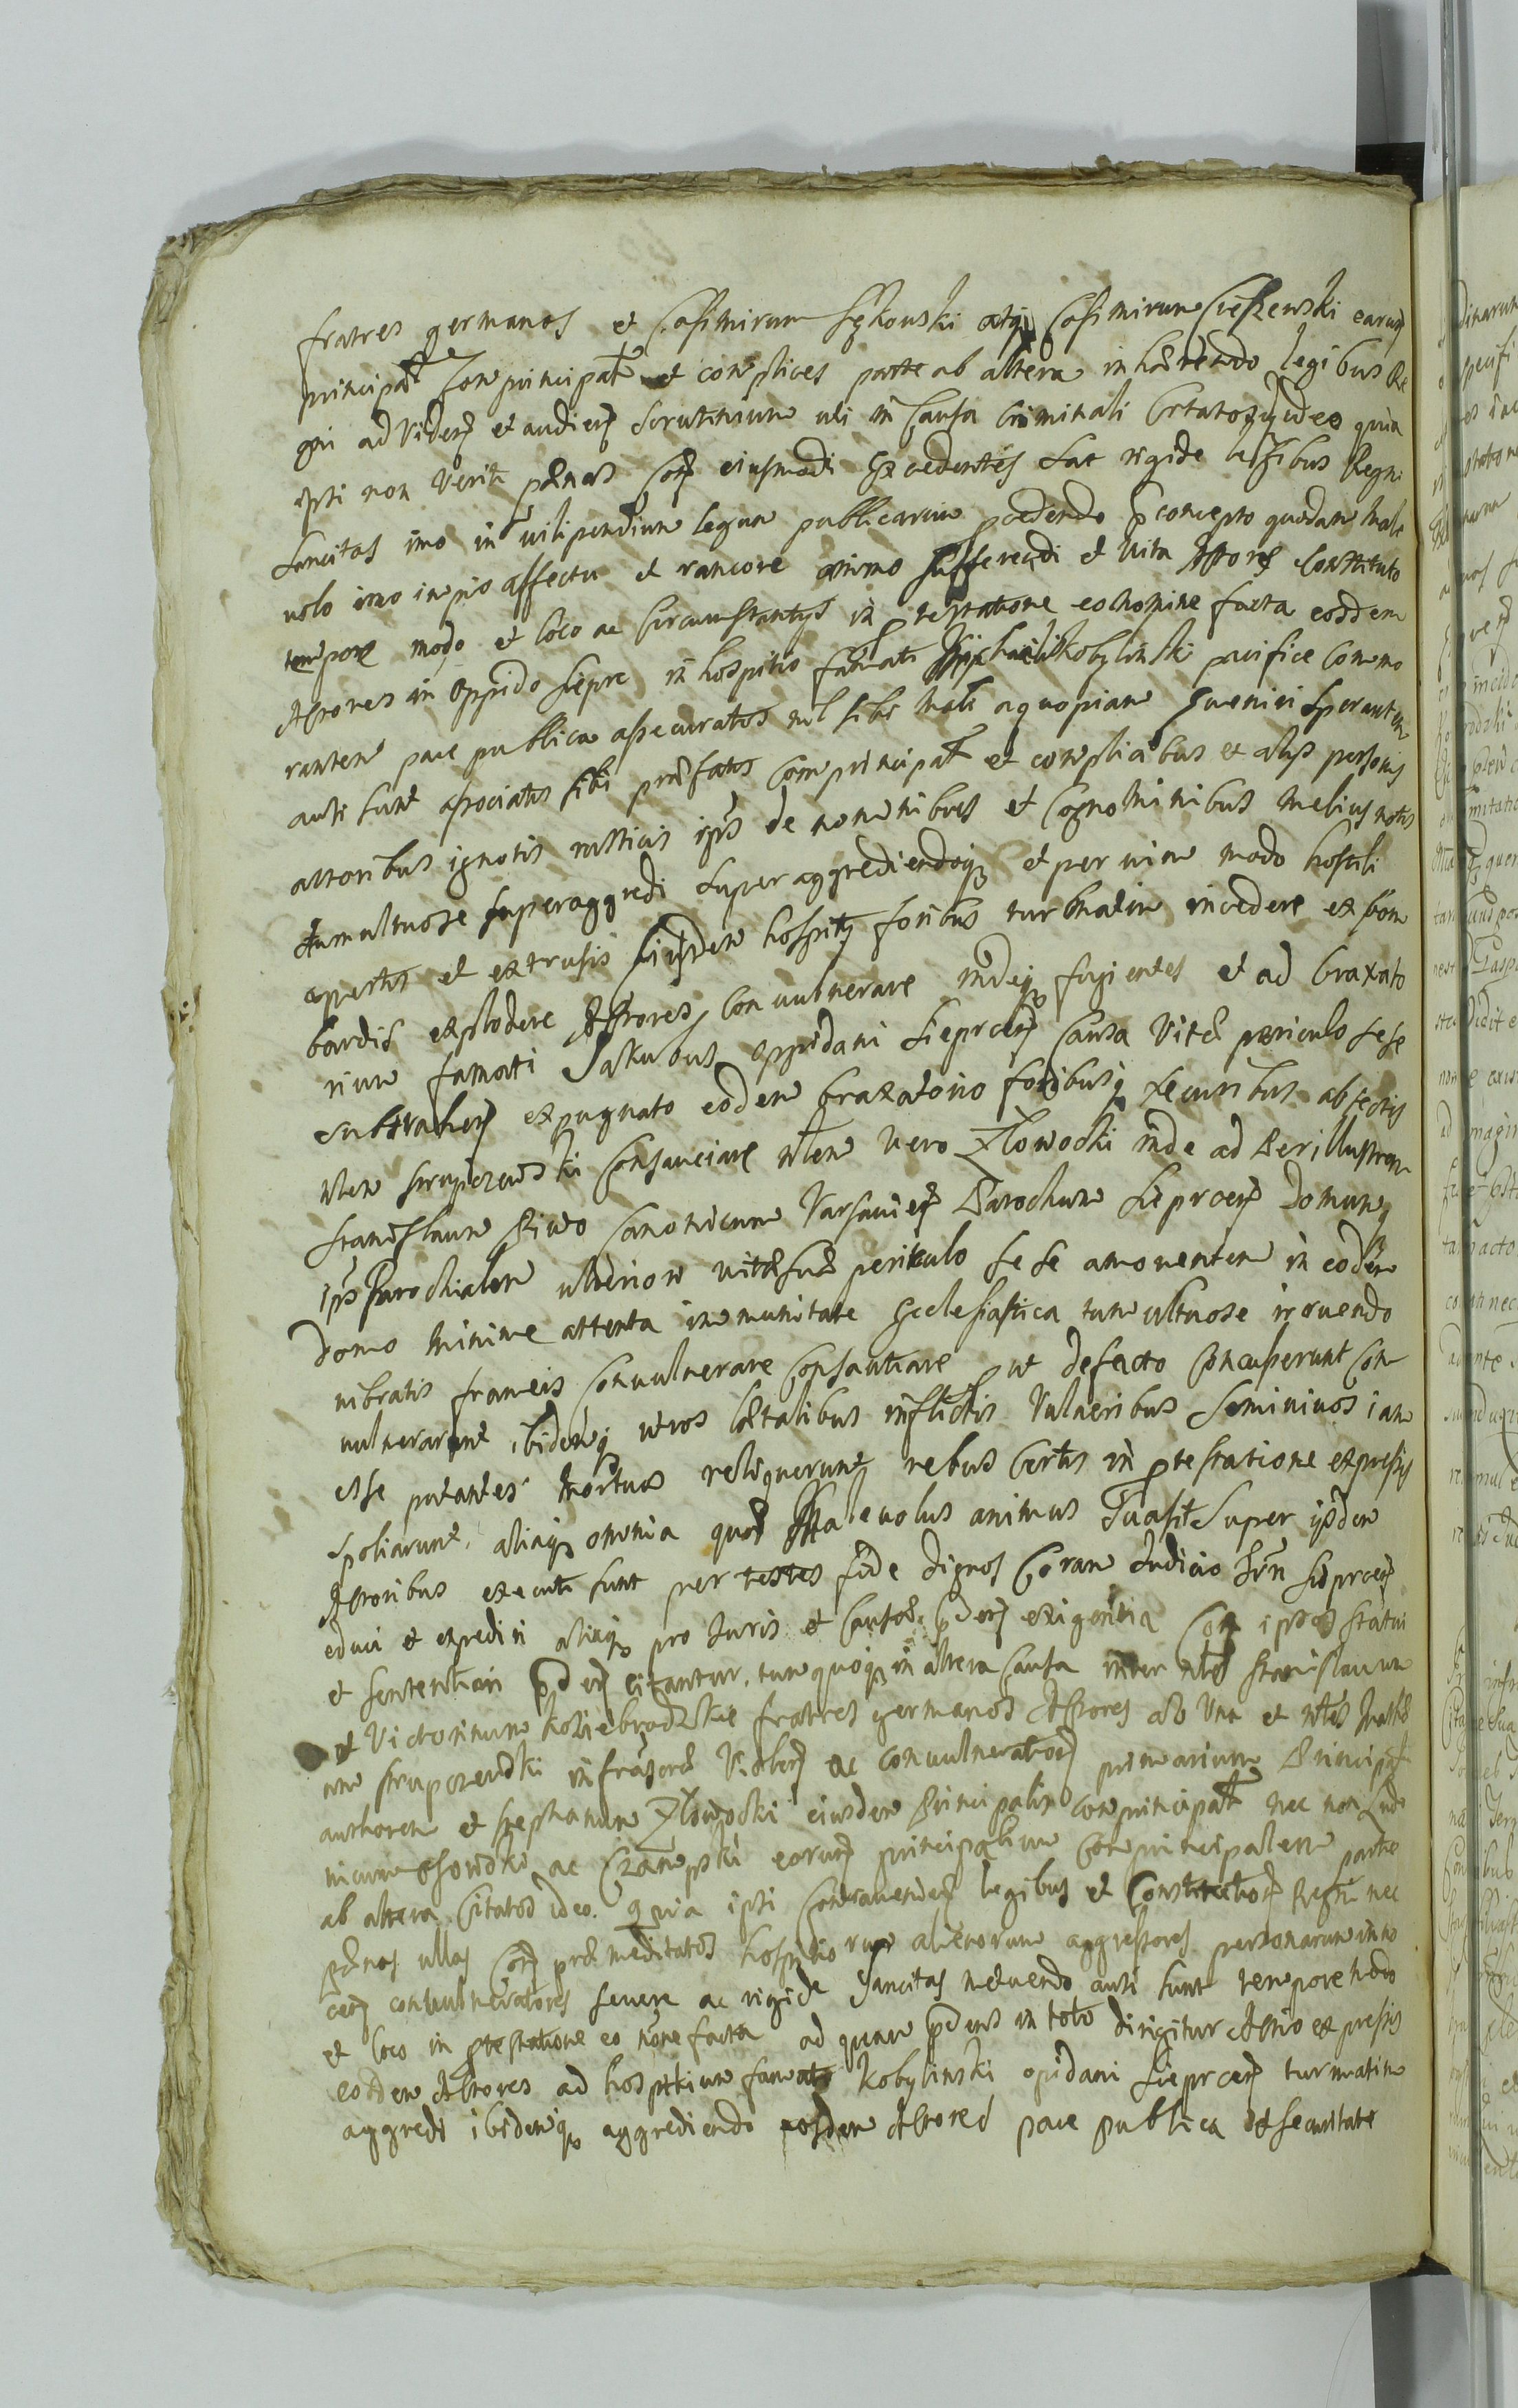 fratres germanos et Casimirum Sękowski atq Casimirum Cieszewski earum
principał Comprincipał et complices parte ab altera inhærendo legibus Re
gni ad Viden et audien Scrutinium uti in Causa Criminali Citatos ideo quia
ipsi non veriti pænas con eiusmodi Excedentes Sat rigide legibus Regni
Sancitas imo in vilipendium legum publicarum procedendo ex concepto quodam male
uolo imo impio affectu et rancore animo Sufferendi et vita Actores Constituto
tempore modo et loco ac Circumstantys in protestatione eo nomine facta eosdem
Actores in Oppido Siepre in hospitio famati Michaelis Kobylinski pacifice Commo
rantem pace publica assecuratos nil sibi mali a quopiam euenire Sperantem
ausi sunt asociatis sibi præfatis Comprincipał et complicibus et alys personis
actoribus ignotis rusticis ipsis de nominibus et Cognominibus melius notis
tumultuose Superaggredi Superaggrediendoq et per uim modo hostili
apertis et extrusis Eiusdem hospity foribus turmatim incedere ex bom
bardis explodere Actores Conuulnerare indeq fugientes et ad braxato
rium famati Jakubus oppidani Sieprcen Causa Vitæ periculo sese
subtrahen expugnato eodem braxatorio foribusq securibus absectis
Nlem Strupczewski Consauciare Nlem vero Zlowocki inde ad Perillustrem
Stanislaum Piwo Canonicum Varsauien Parochum Sieprcen Domumq
ips Parochialem ulteriori vitæ suæ periculo sese amouentem in eodem
domo minime attenta immunitate Ecclesiastica tumultuose irruendo
uibratis frameis Conuulnerare Consauciare prout de facto Concusserunt Con
uulnerarunt ibidemq ueros lætalibus inflictis Vulneribus Seminiuos iam
esse putantes mortuos reliquerunt rebus Certis in protestatione expressis
Spoliarunt, aliaq omnia quæ Maleuolus animus Suasit Super ysdem
Actoribus executi sunt per testes fide dignos Coram Judicio Sieprcen
educi et expediri aliaq pro Juris et Causæ præsen exigentia Con ipsos statui
et Sententiari præsen Citantur. tum quoq in altera Causa inter Nles Stanislaum
et Victorinum Koziebrodzkie fratres germanos Actores ab Una et Nles Mathi
um Strupczewski infrascræ Violen ac Conuulnerationis primarium Principał
authorem et Stephanum Zlowocki eiusdem Principalis comprincipał nec non Ludo
uicum Ossowski ac Czampski eorum principalium Comprincipalem parte
ab altera Citatos ideo quia ipsi Contrauenien legibus et Constitution Regni nec
pænas ullas Con præmeditatos hospitiorum alienorum aggressores personarum inno
cen conuulneratores Seuere ac rigide Sancitas metuendo ausi sunt tempore modo
et loco in protestatione eo nomine facta ad quam præsens in toto dirigitur Actio expressis
eosdem Actores ad hospitium famati Kobylinski opidani Sieprcen turmatim
aggredi ibidemq aggrediendo eosdem Actores pace publica et securitate